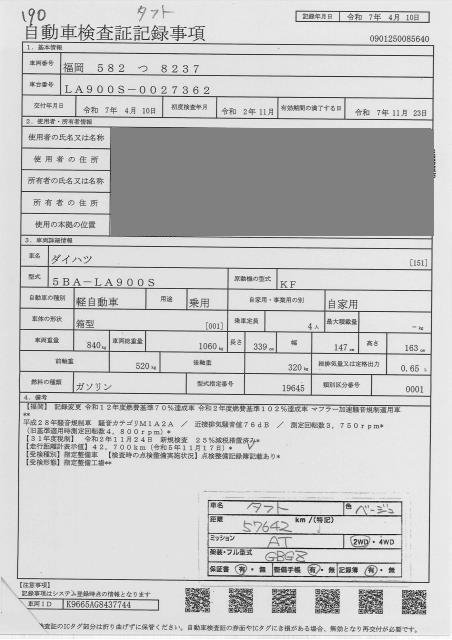 190 タフト
記録年月日 令和 7年 4月 10日
自動車検査証記録事項
0901250085640
1．基本情報
車両番号 福岡 582 つ 8237
車台番号 LA900S-0027362
交付年月日 令和 7年 4月 10日 初度検査年月 令和 2年11月 有効期間の満了する日 令和 7年 11月 23日
2．使用者・所有者情報
使用者の氏名又は名称
使用者の住所
所有者の氏名又は名称
所有者の住所
使用の本拠の位置
3．車両詳細情報
車名 ダイハツ [151]
型式 5BA-LA900S 原動機の型式 KF
自動車の種別 軽自動車 用途 乗用 自家用・事業用の別 自家用
車体の形状 箱型 [001] 乗車定員 4人 最大積載量 -kg
車両重量 840kg 車両総重量 1060kg 長さ 339cm 幅 147cm 高さ 163cm
前軸重 520kg 後軸重 320kg 総排気量又は定格出力 0.65 L
燃料の種類 ガソリン 型式指定番号 19645 類別区分番号 0001
4．備考
【福岡】 記録変更 令和12年度燃費基準70％達成車 令和2年度燃費基準102％達成車 マフラー加速騒音規制適用車
**
平成28年騒音規制車 騒音カテゴリM1A2A ／ 近接排気騒音値76dB ／ 測定回転3，750rpm*
(旧基準適用時測定回転数4，800rpm)*
【31年度税制】 令和2年11月24日 新規検査 25％減税措置済み*
【走行距離計表示値】42，700km（令和5年11月17日）*
【受検種別】指定整備車 【検査時の点検整備実施状況】点検整備記録簿記載あり*
【受検形態】指定整備工場**
車名 タフト 色 ベージュ
距離 57642 km／(特記)
ミッション AT 2WD・4WD
架装・フル型式
保証書 有・無 整備手帳 有・無 記録簿 有・無
【注意事項】
記録事項はシステム登録時点の情報となります
車両ID K9665AG8437744
検査証のICタグ部分は折り曲げずに保管ください。自動車検査証の券面やICタグに色損がある場合、無効となり再交付が必要です。